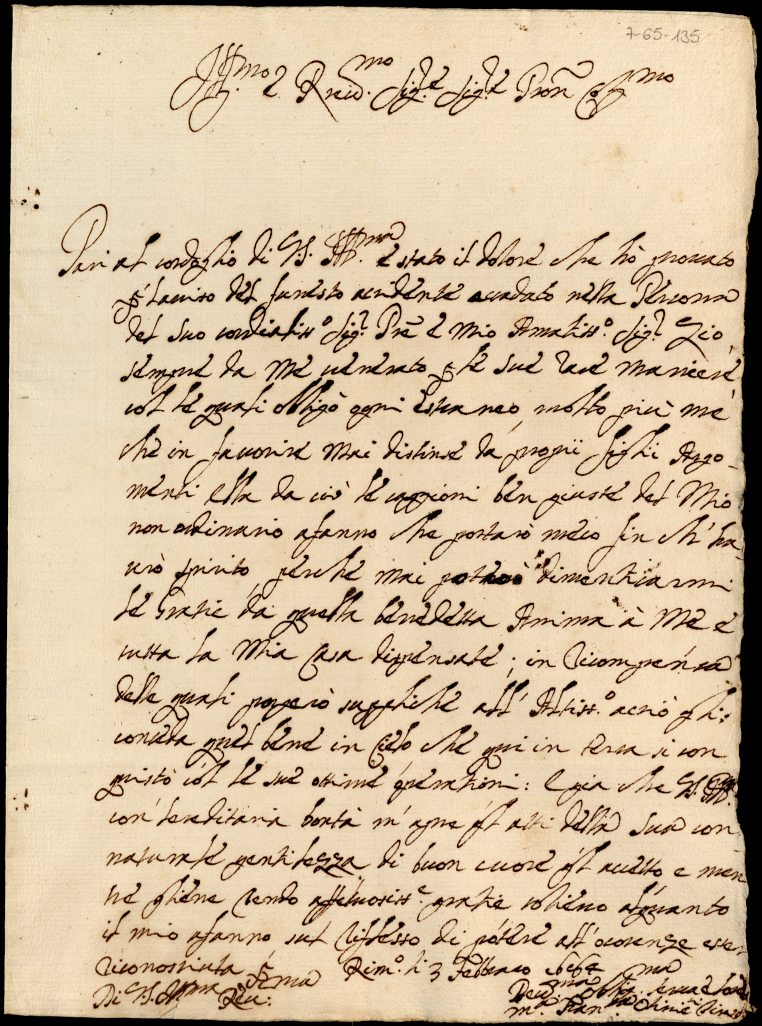 7-65-135
Ill.mo e Reu.mo Sig.e Sig.e Pron Col.mo
Pari al cordoglio di V.S. Ill.ma è stato il dolore che hò prouato
p l'auiso del funesto accidente accaduto nella Persona
del suo cordialiss.o Sig.r Pré e Mio Amatiss.o Sig.r Zio,
sempre da Me uenerato p le sue rare maniere
col le quali obligò ogni estraneo, molto più me
che in fauorire mai distinse da proprii figli Argo-
menti ella da ciò le caggioni ben giuste del Mio
non ordinario afanno che portarò meco fin ch'ha
urò spirito, perche mai potrò dimenticarmi
le gratie da quella benedetta Anima à Me e
tutta la Mia Casa dispensate; in ricompensa
delle quali porgerò suppliche all'Altiss.o acciò gli
conceda quel bene in Cielo che qui in terra si con
quistò col le sue ottime operationi: e gia che V.S. Ill.
con hereditaria bontà m'apre gl'atti della sua con
naturale gentilezza di buon cuore gl'accetto e men
tre gliene rendo affettuosiss.e gratie solieuo alquanto
il mio afanno sul riflesso di potere all'occorenze esser
riconosciuta Rim.o li 3 Febbraro
Di V.S. Ill.ma Reu.ma
Deu.ma Oblig.ma serua e
M.a Fran.ca